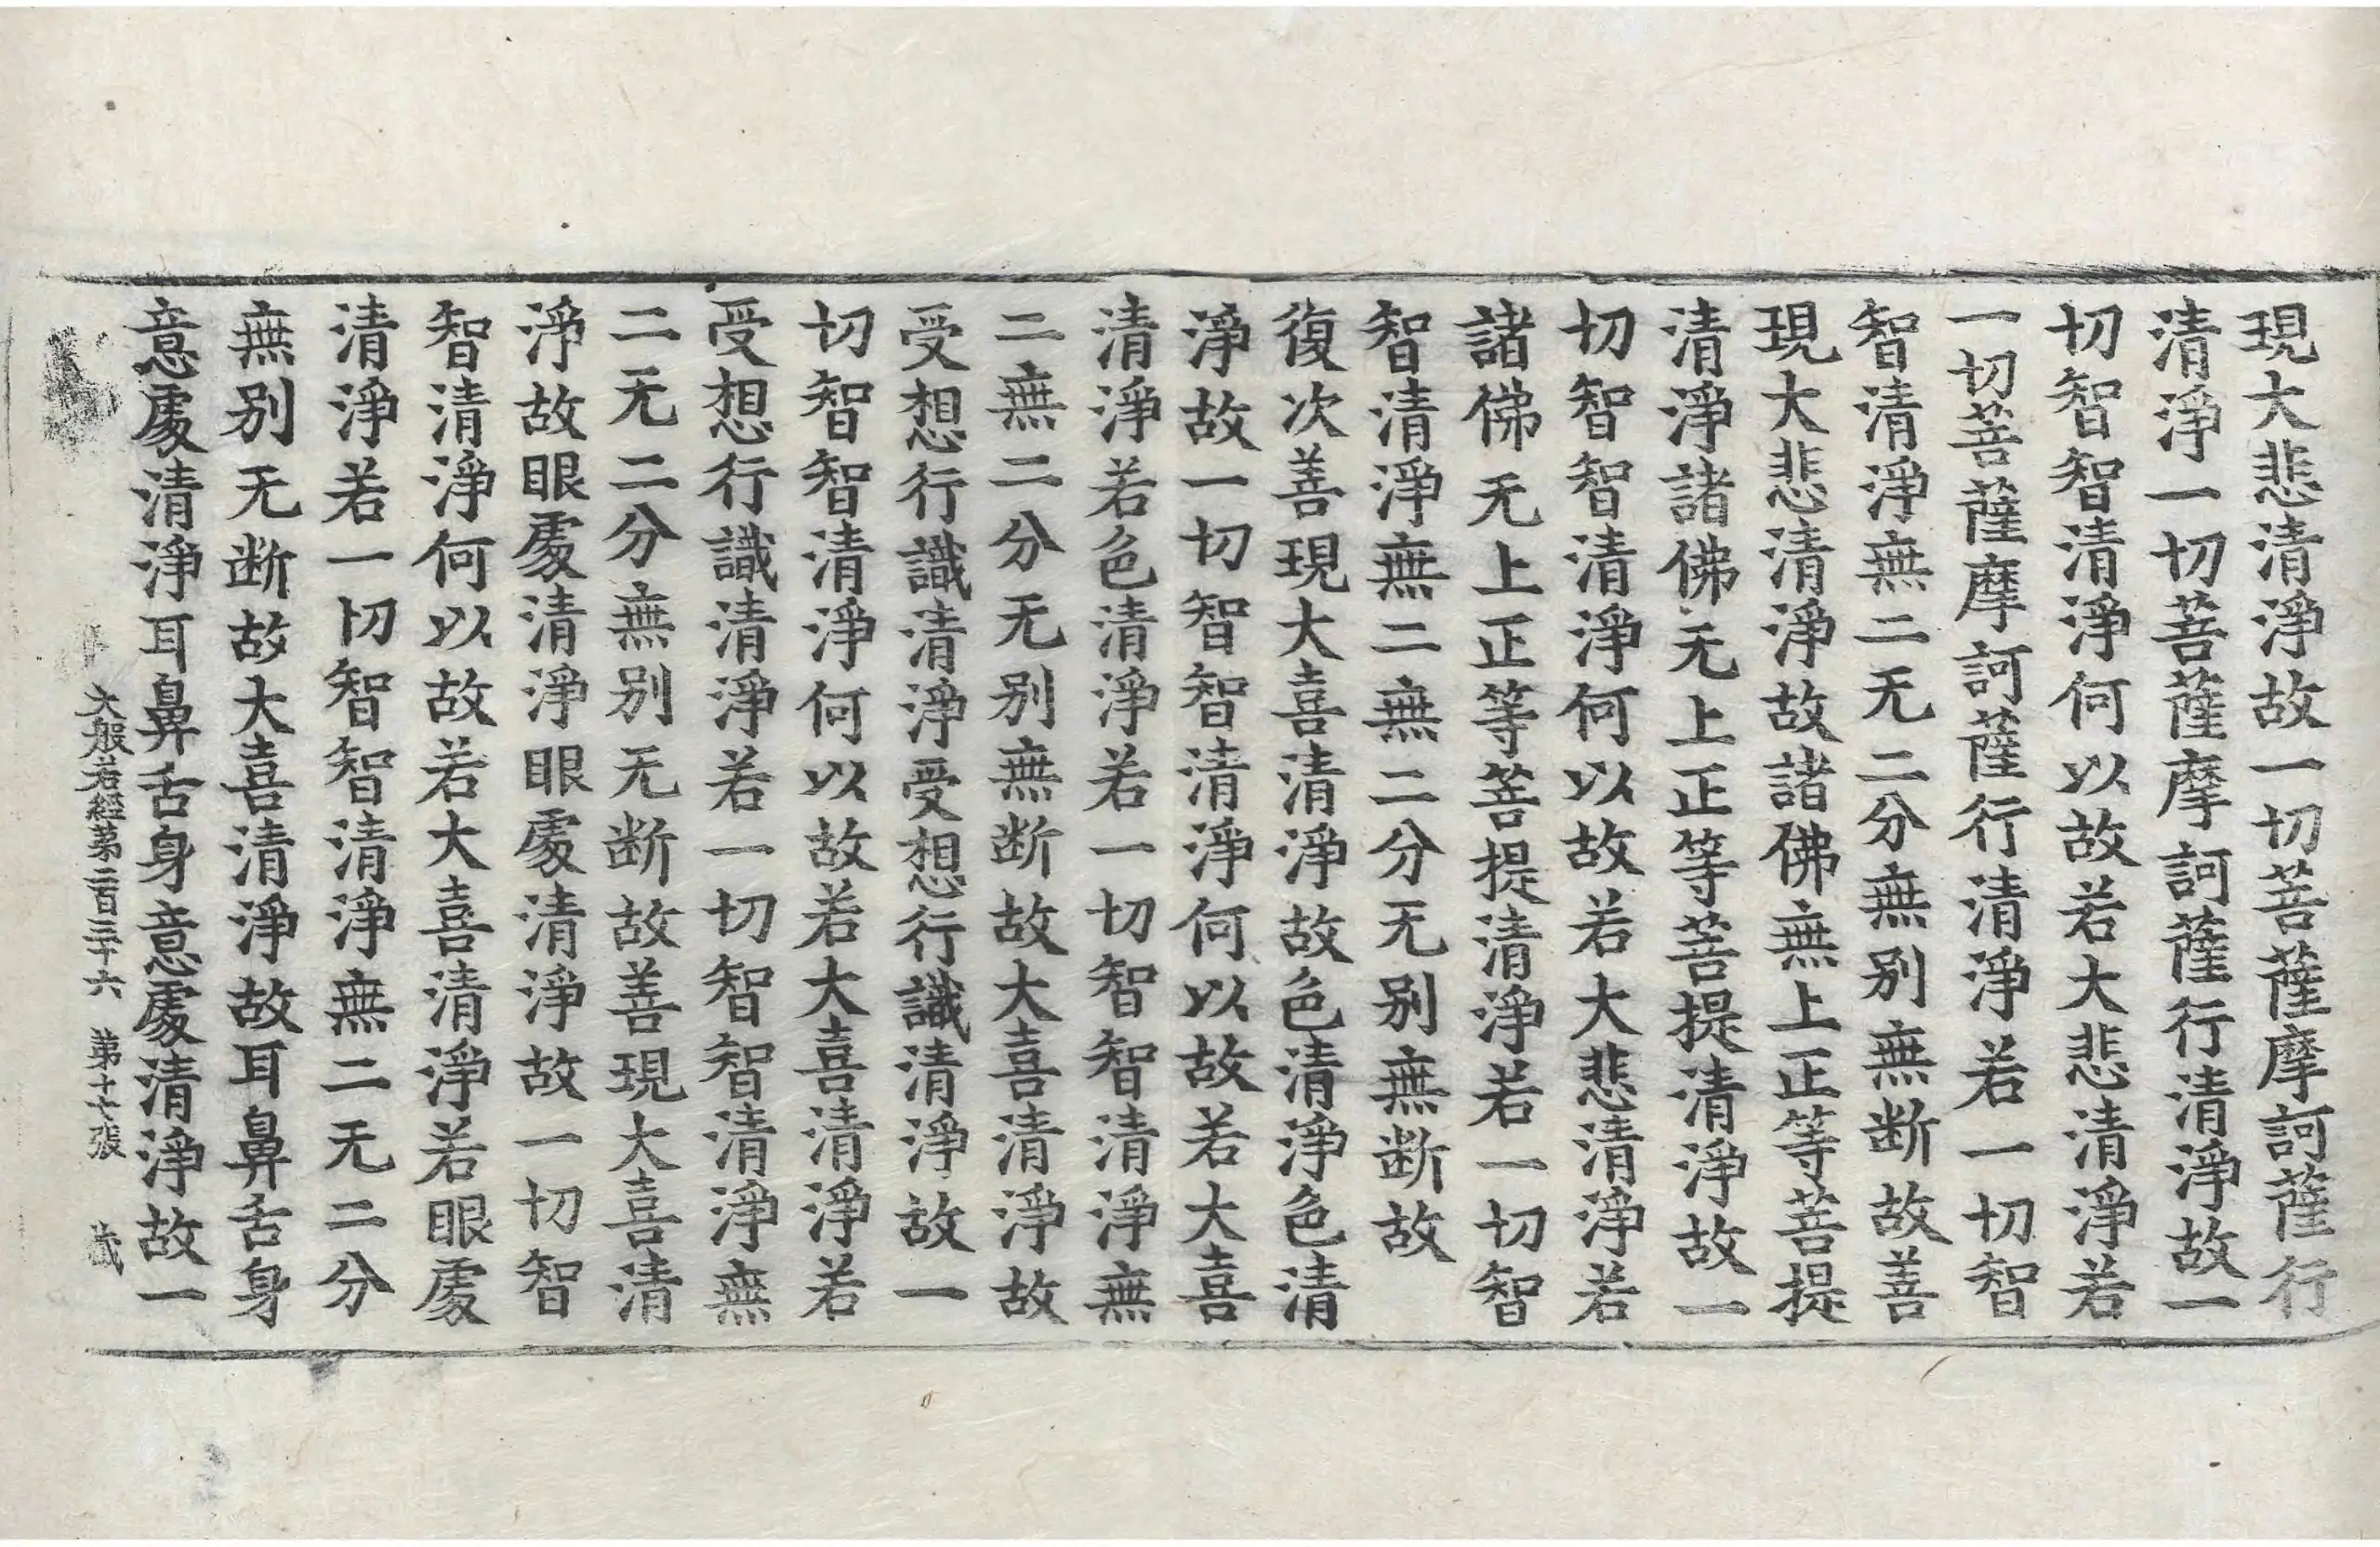 現大悲清淨故一切菩薩摩訶薩行
清淨一切菩薩摩訶薩行清淨故一
切智智清淨何以故若大悲清淨若
一切菩薩摩訶薩行清淨若一切智
智清淨無二无二分無别無断故善
現大悲清淨故諸佛無上正等菩提
清淨諸佛无上正等菩提清淨故一
切智智清淨何以故若大悲清淨若
諸佛无上正等菩提清淨若一切智
智清淨無二無二分无别無断故
復次善現大喜清淨故色清淨色清
淨故一切智智清淨何以故若大喜
清淨若色清淨若一切智智清淨無
二無二分无别無断故大喜清淨故
受想行識清淨受想行識清淨故一
切智智清淨何以故若大喜清淨若
受想行識清淨若一切智智清淨無
二无二分無别无断故善現大喜清
淨故眼處清淨眼處清淨故一切智
智清淨何以故若大喜清淨若眼處
清淨若一切智智清淨無二无二分
無别无断故大喜清淨故耳鼻舌身
意處清淨耳鼻舌身意處清淨故一
大般若經苐二百三十六 苐十七張